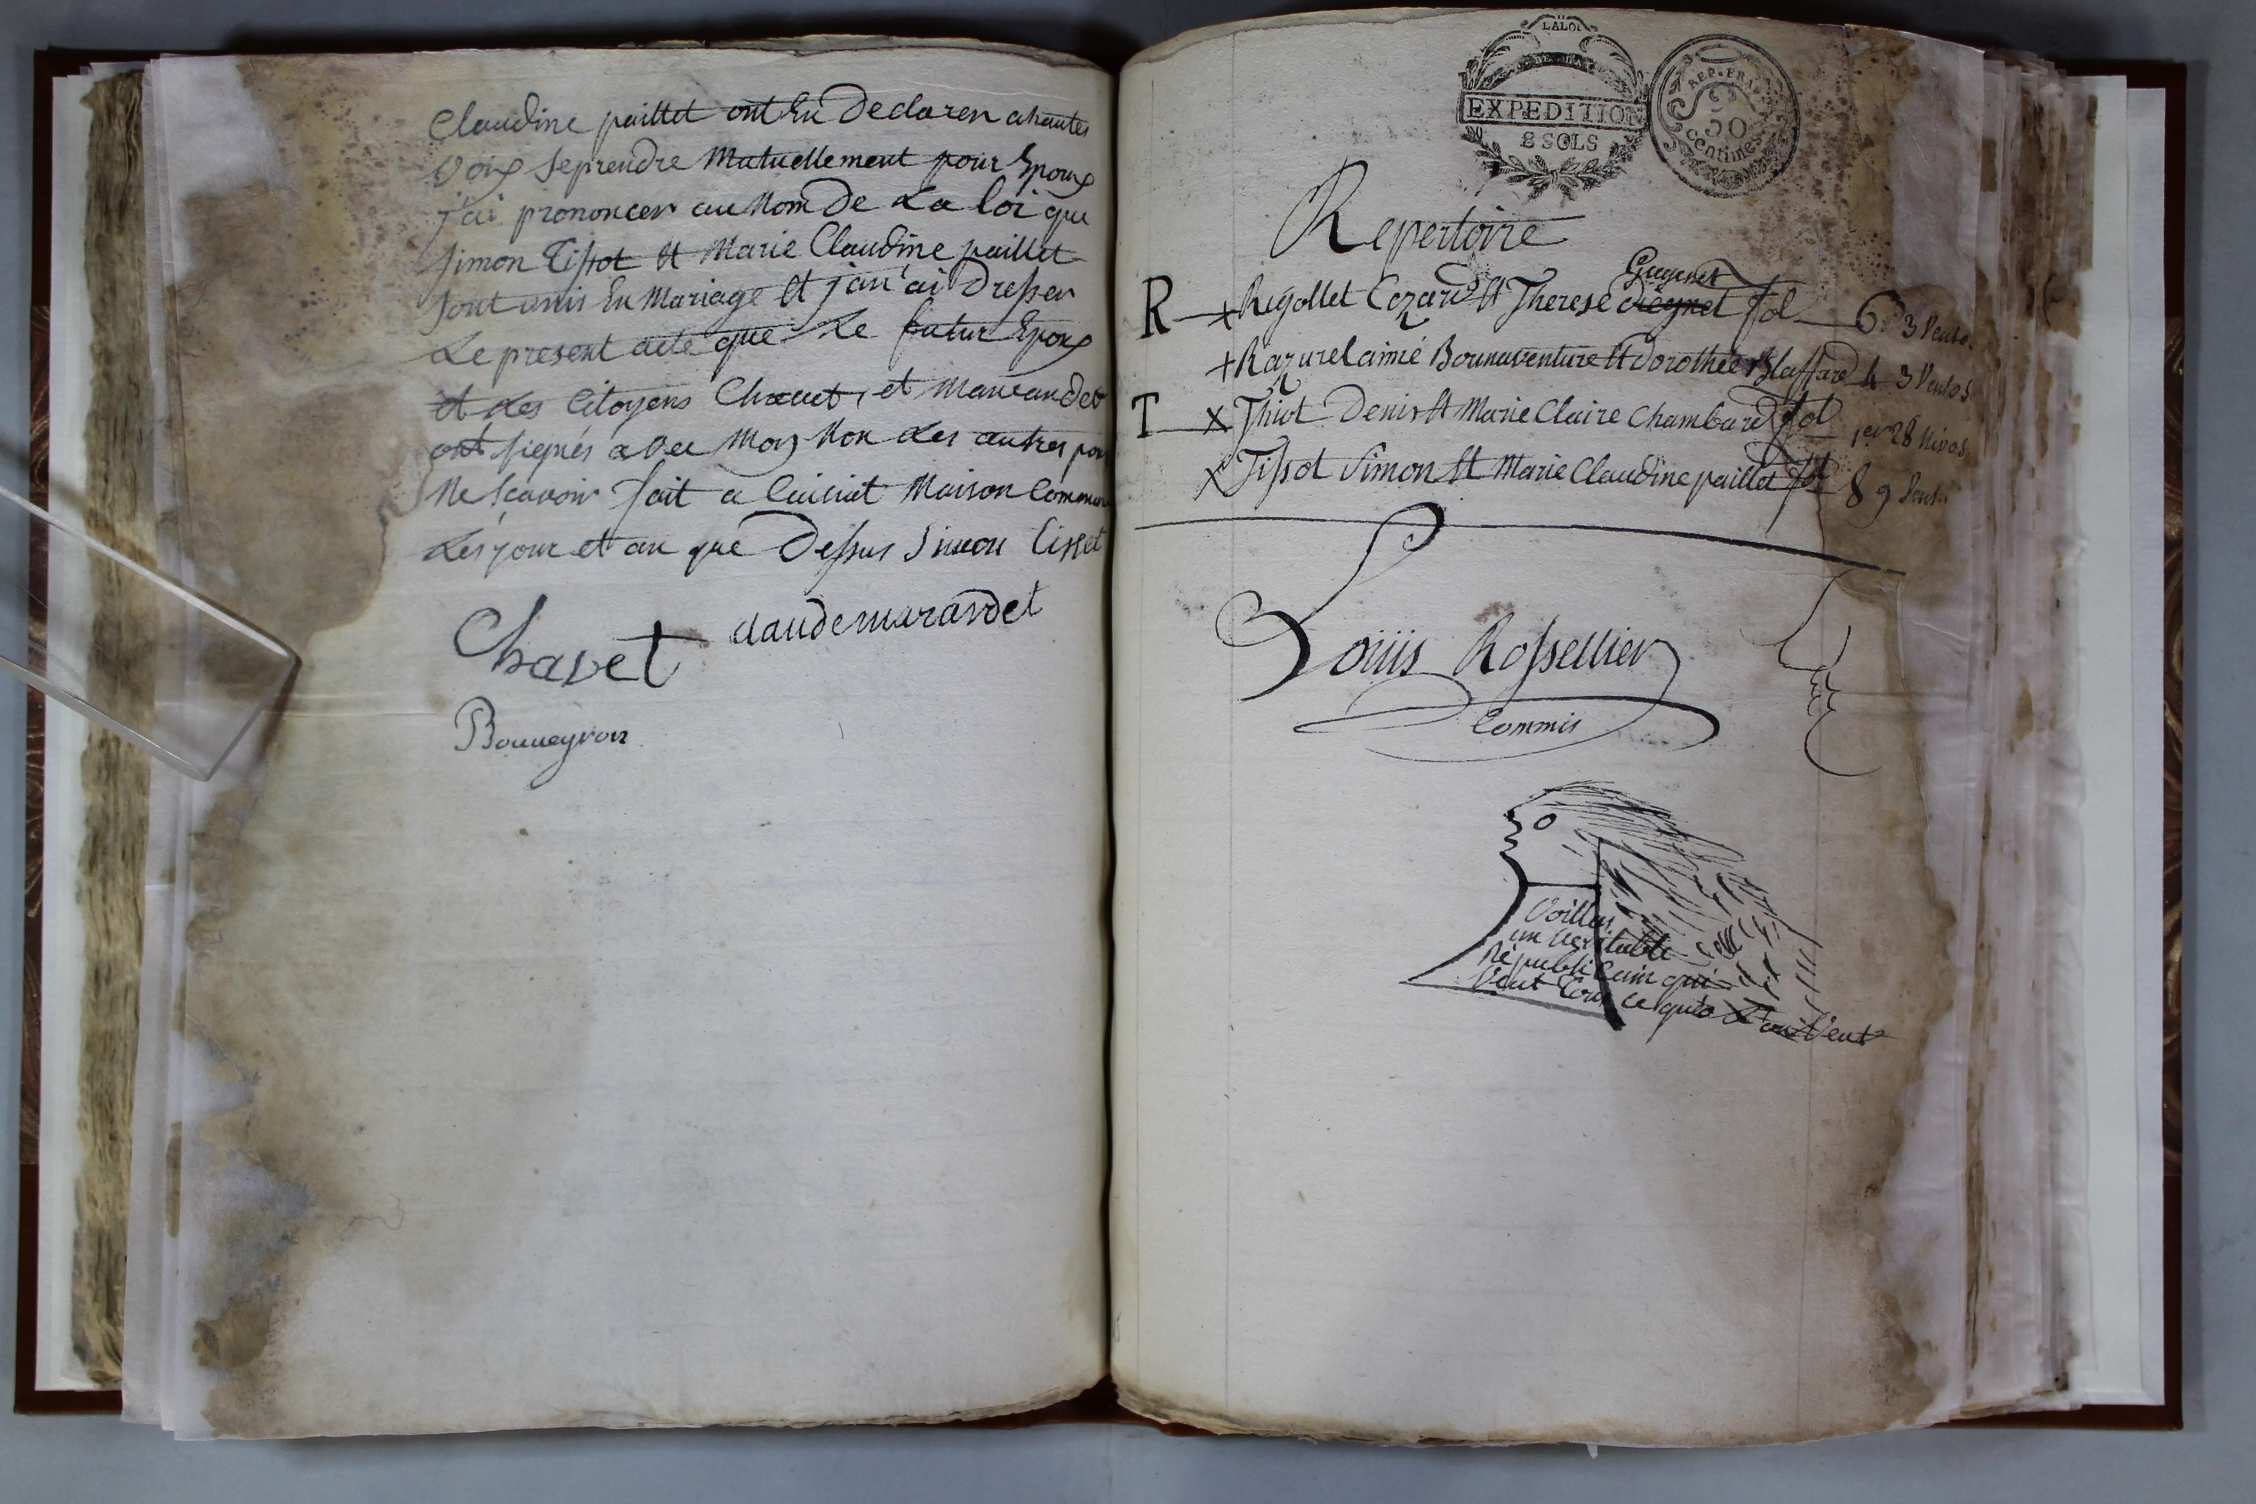 Claudine paillet ont En Declarer a hautes
Voix se prendre Mutuellement pour Epoux
j'ai prononcer au Nom De La loi que
Simon Tissot Et Marie Claudine paillet
sont unis En Mariage Et j'an'ai Dresser
Le present acte que Le futur Epoux
et Les Citoyens Chavet, et Marandet
ont signés avec Moy Non Les autres pour
Ne Scavoir fait a Cuisiat Maison Commune
Les jour et an que Dessus Simon tisset
Chavet claude marandet
Bouveyron
LALOI
EXPEDITION
2 SOLS
REP. FRA
50
Centimes
Repertoire
Gugenet
R x Regollet Cezard Et Therese fol 6 3 Vento.
+ Razurel aimé Bonnaventure Et Dorothée Blaffard 4 3 Ventos
T x Thiot Denis Et Marie Claire Chambard fol 1er 28 Nivos
x Tissot Simon Et Marie Claudine paillet fol 8 9 Vent.
Louis Rossellier
Commis
Voilla
un veritable
Républicain qui
veut tous ce qu'o veut